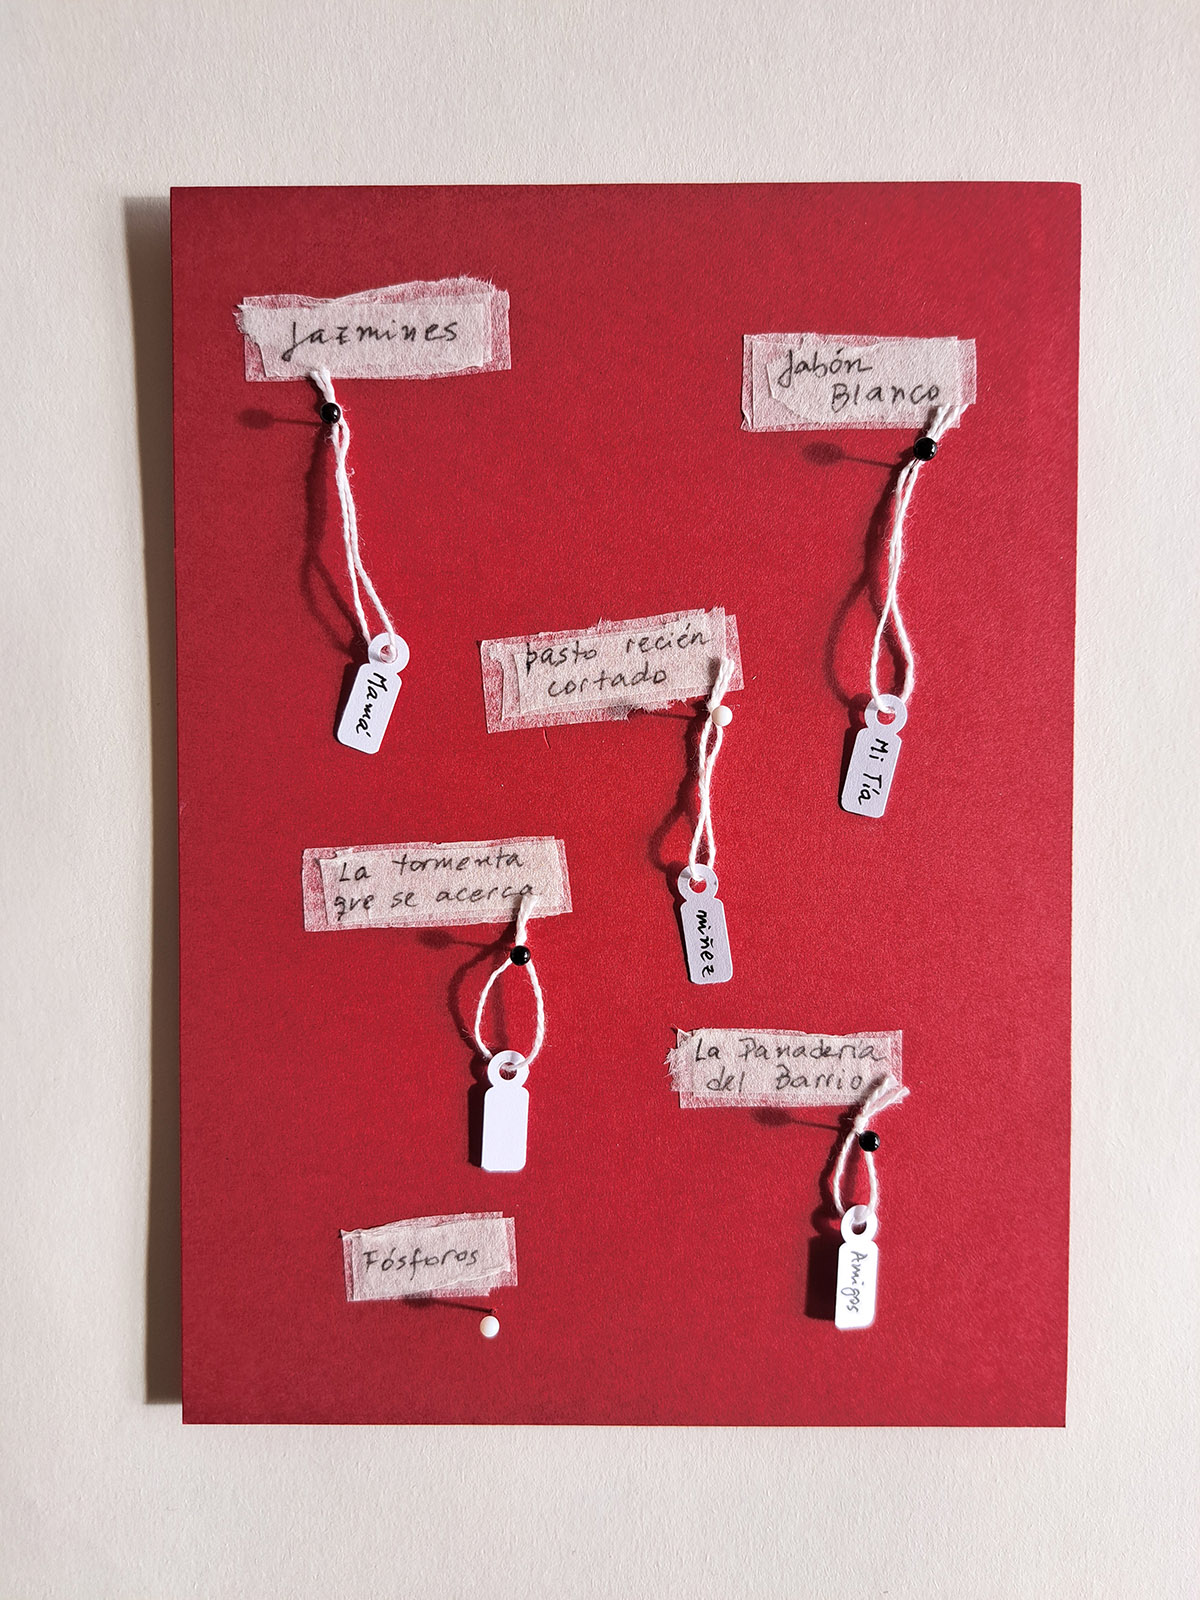 Jazmines
Mamá
Jabón
Blanco
Mi Tía
pasto recién
cortado
niñez
La tormenta
que se acerca
La Panadería
del Barrio
Amigos
Fósforos